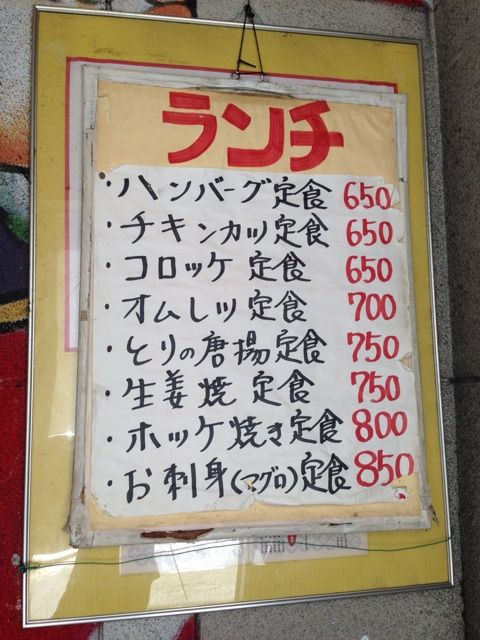 ランチ
・ハンバーグ定食 650
・チキンカツ定食 650
・コロッケ定食 650
・オムレツ定食 700
・とりの唐揚定食 750
・生姜焼定食 750
・ホッケ焼き定食 800
・お刺身(マグロ)定食 850